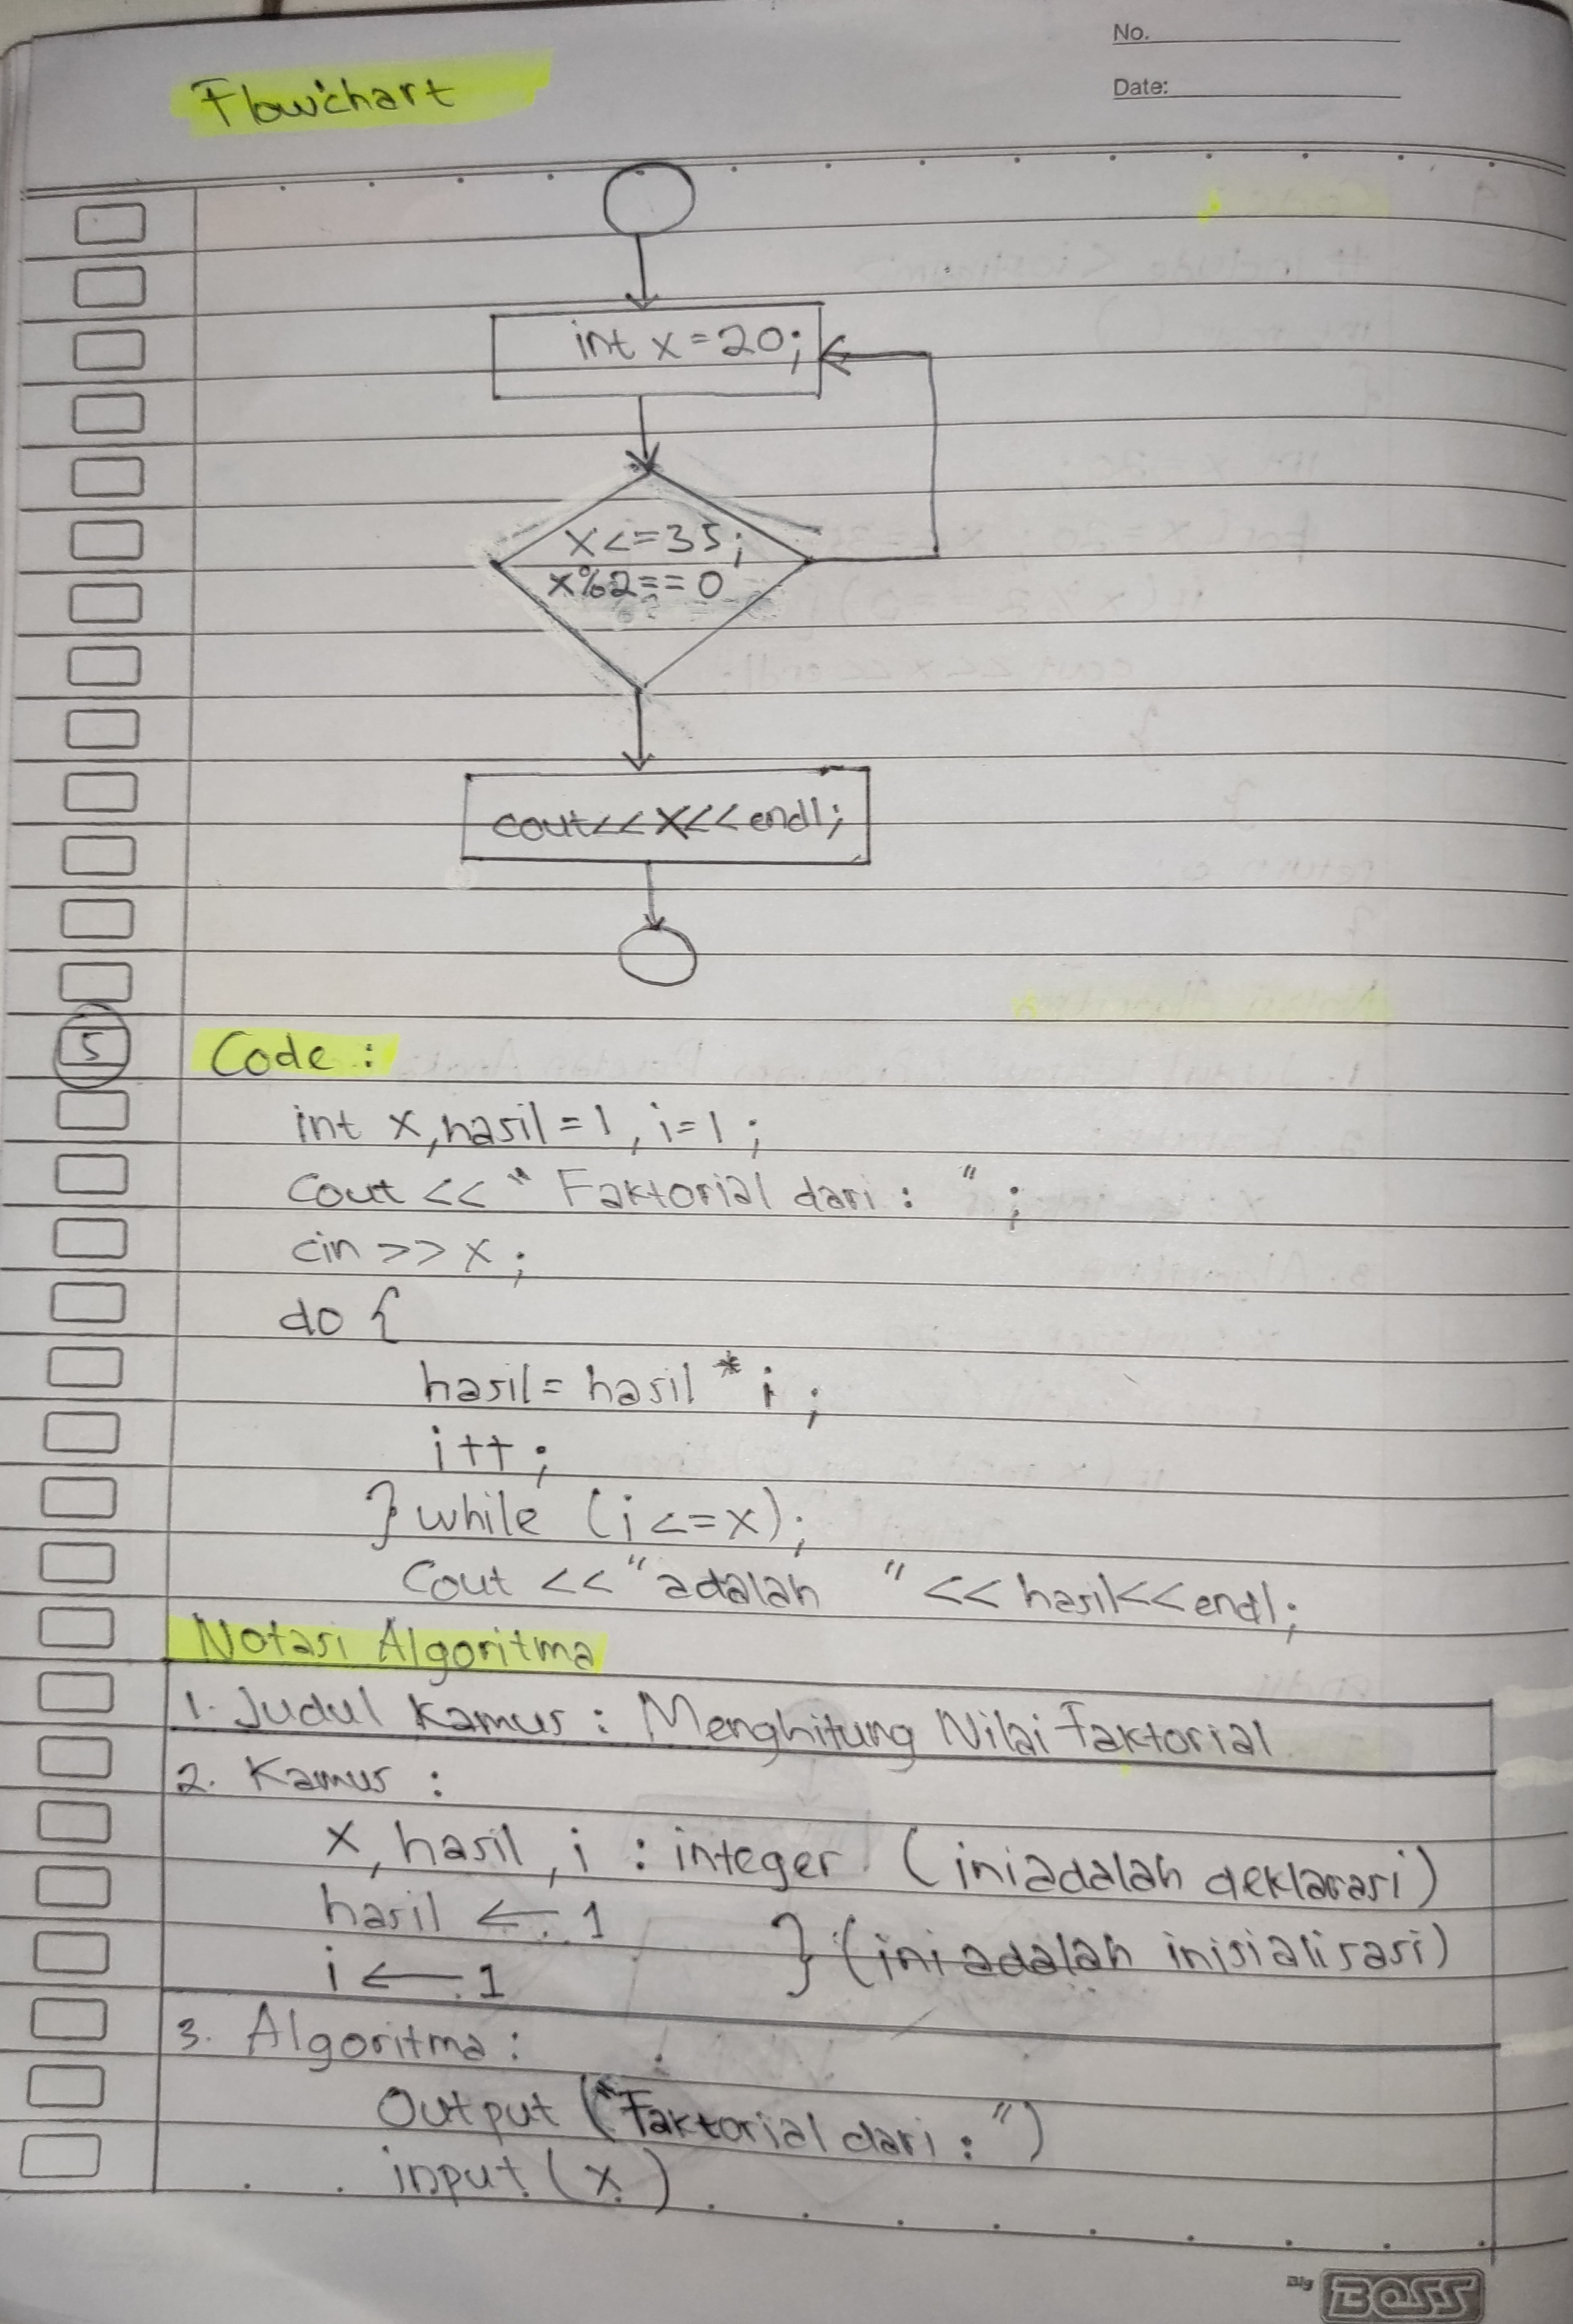 No.
Date:
Flowchart
int x = 20;
x <= 35;
x%2 == 0
cout<<x<<endl;
5
Code :
int x, hasil = 1, i=1 ;
Cout << " Faktorial dari : " ;
cin >> x ;
do {
hasil = hasil * i ;
i ++ ;
} while (i <= x);
Cout << "adalah " << hasil<<endl;
Notasi Algoritma
1. Judul Kamus : Menghitung Nilai Faktorial
2. Kamus :
x, hasil, i : integer (ini adalah deklarasi)
hasil ← 1
} (ini adalah inisialisasi)
i ← 1
3. Algoritma :
Output ("Faktorial dari : ")
input (x)
Big BOSS